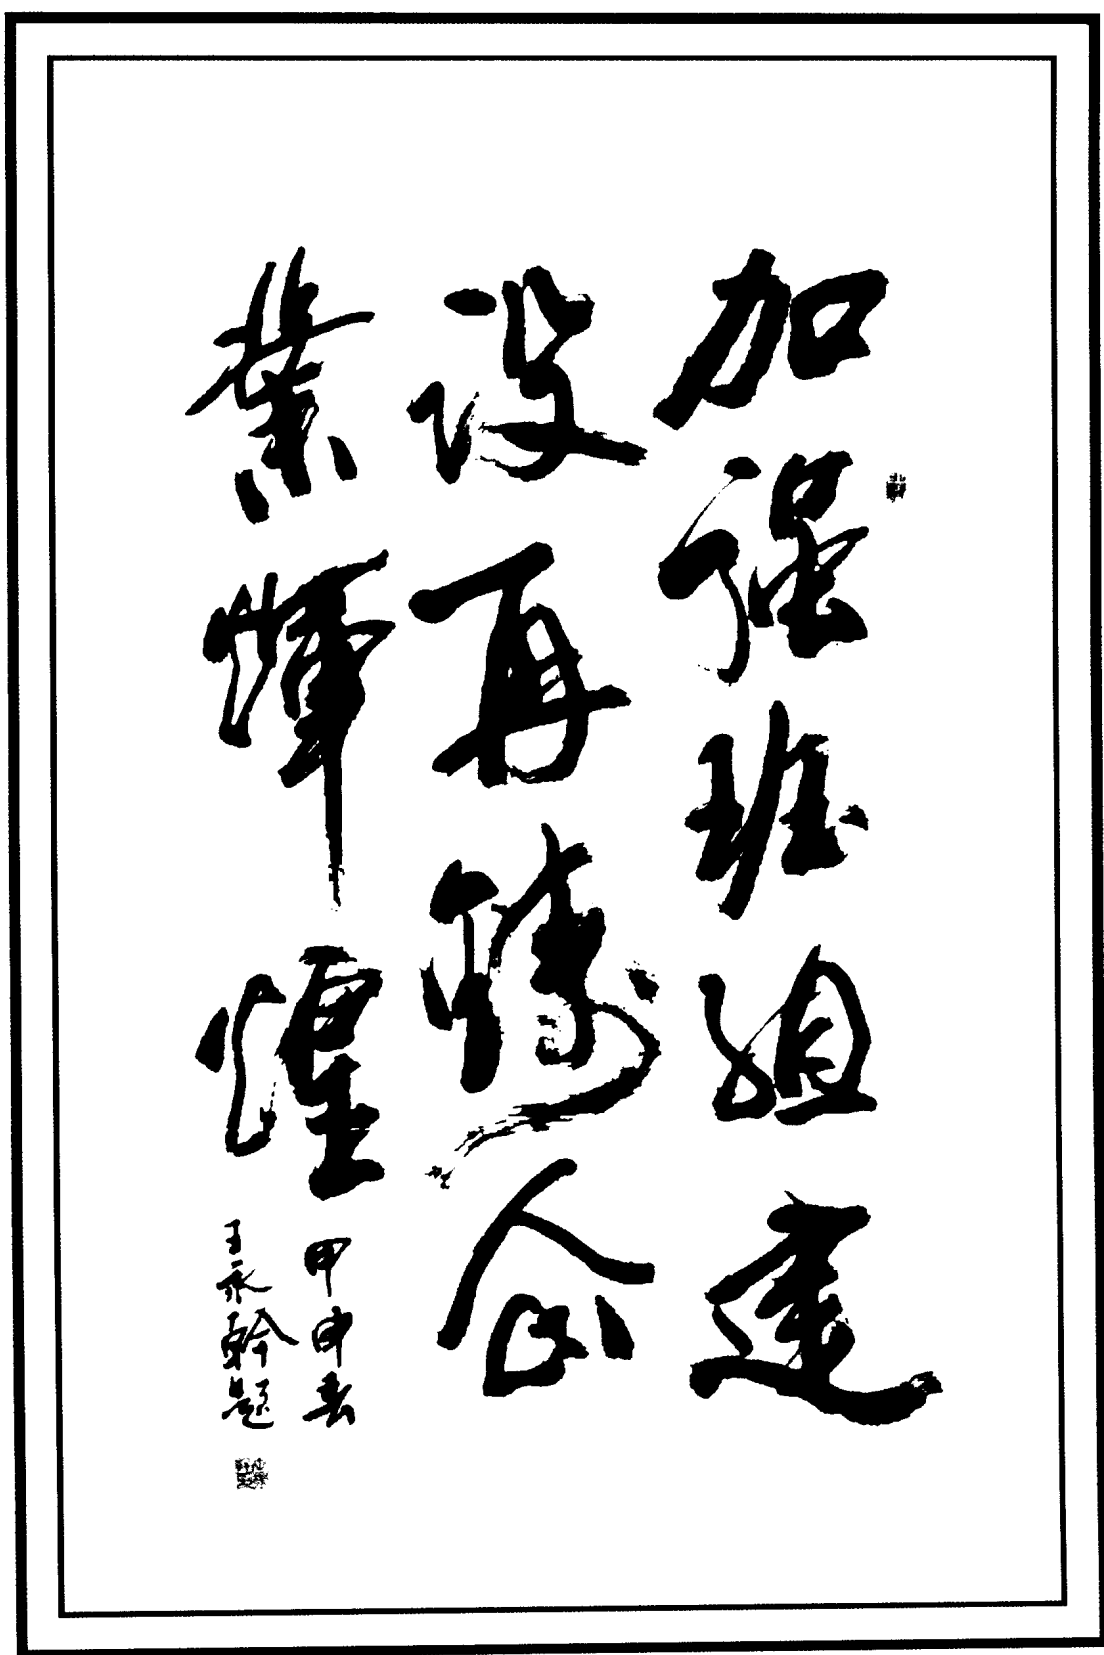 加强班组建
设再铸企
業輝煌
甲申春
王永幹题